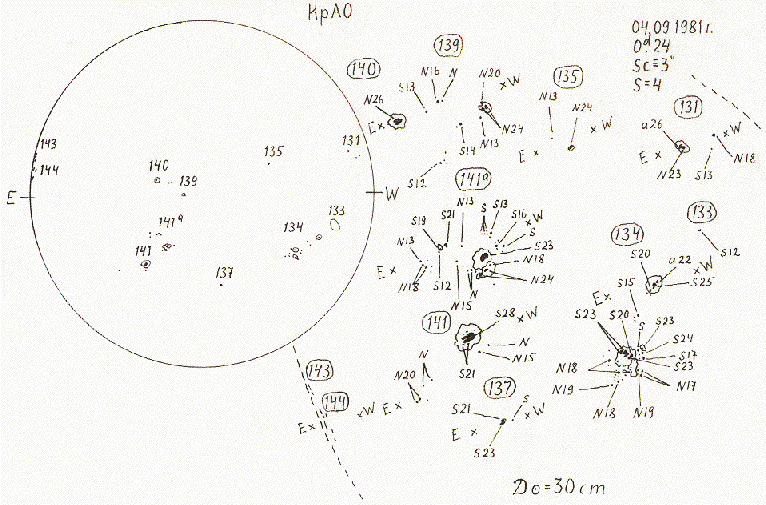 КрАО
04.09 1981г.
0d.24
Sc=3"
S=4
139
140
N16
N
N20
W
135
S13
N26
E
N24
N13
S14
S12
N13
N24
W
E
131
u26
W
E
N23
S13
N18
143
144
140
139
135
131
E
W
141a
141
134
133
137
141a
N13
S
S13
S16
W
S19
S21
S
S23
N13
E
N18
S12
N18
N24
N15
N
133
S12
134
S20
u22
W
S25
E
S15
141
S28
W
N
N15
S21
N
N20
E
S23
S20
S
S23
S24
S17
S23
N18
N19
N17
N18
N19
143
144
E
W
137
S
S21
W
E
S23
D⊙=30cm